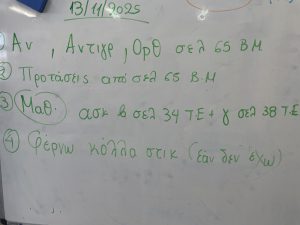 13/11/2025
1 Αν , Αντιγρ , Ορθ σελ 65 Β.Μ
2 Προτάσεις από σελ 65 Β.Μ
3 Μαθ. ασκ β σελ 34 Τ.Ε + γ σελ 38 Τ.Ε
4 Φέρνω κόλλα στικ (εάν δεν έχω)